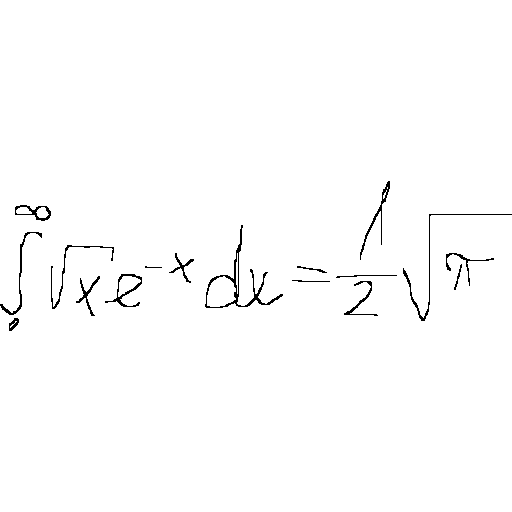 \int_{0}^{\infty} \sqrt{x} e^{-x} dx = \frac{1}{2} \sqrt{\pi}